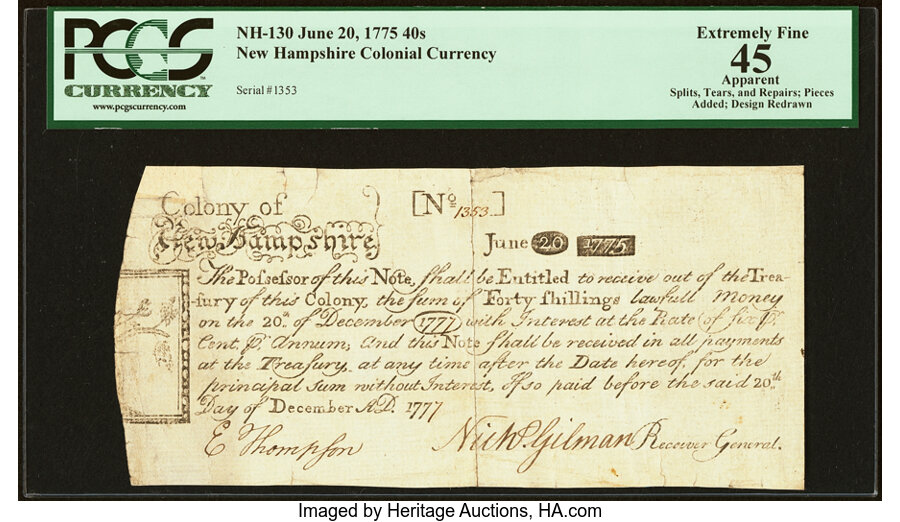 PCGS
CURRENCY
www.pcgscurrency.com
NH-130 June 20, 1775 40s
New Hampshire Colonial Currency
Serial #1353
Extremely Fine
45
Apparent
Splits, Tears, and Repairs; Pieces
Added; Design Redrawn
Colony of
New Hampshire
[No 1353]
June 20 1775
The Possessor of this Note, shall be Entitled to receive out of the Trea-
sury of this Colony, the sum of Forty shillings lawfull Money
on the 20th of December 1777 with Interest at the Rate of six Pr.
Cent. Pr. Annum; And this Note shall be received in all payments
at the Treasury, at any time after the Date hereof, for the
principal Sum without Interest, if so paid before the said 20th
Day of December A.D. 1777
E Thompson
Nichs. Gilman Receiver General.
Imaged by Heritage Auctions, HA.com